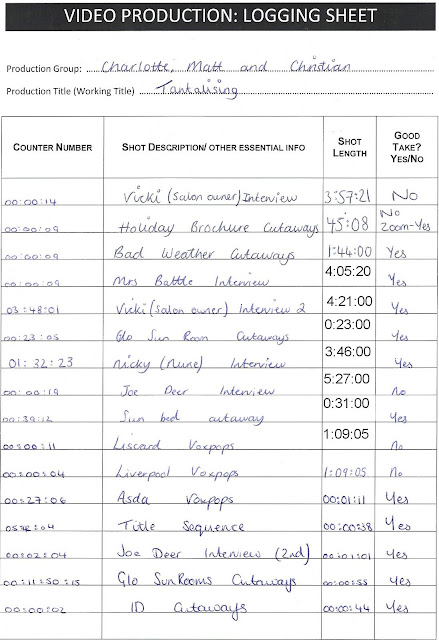 VIDEO PRODUCTION: LOGGING SHEET
Production Group: Charlotte, Matt and Christian
Production Title (Working Title) Tantalising
COUNTER NUMBER SHOT DESCRIPTION/ OTHER ESSENTIAL INFO SHOT LENGTH GOOD TAKE? YES/NO
00:00:14 Vicki (Salon owner) Interview 3:57:21 No
00:00:09 Holiday Brochure Cutaways 45:08 No Zoom-Yes
00:00:09 Bad Weather Cutaways 1:44:00 Yes
00:00:09 Mrs Battle Interview 4:05:20 Yes
03:48:01 Vicki (salon owner) Interview 2 4:21:00 Yes
00:23:05 Glo Sun Room Cutaways 0:23:00 Yes
01:32:23 Nicky (Nurse) Interview 3:46:00 Yes
00:00:19 Joe Deer Interview 5:27:00 No
00:39:12 Sun bed cutaway 0:31:00 Yes
00:00:11 Liscard Voxpops 1:09:05 No
00:00:04 Liverpool Voxpops 1:09:05 No
00:27:06 Asda Voxpops 00:01:11 Yes
Title Sequence 00:00:38 Yes
00:02:04 Joe Deer Interview (2nd) 00:01:01 Yes
00:11:50:15 Glo SunRooms Cutaways 00:00:55 Yes
00:00:02 ID Cutaways 00:00:44 Yes